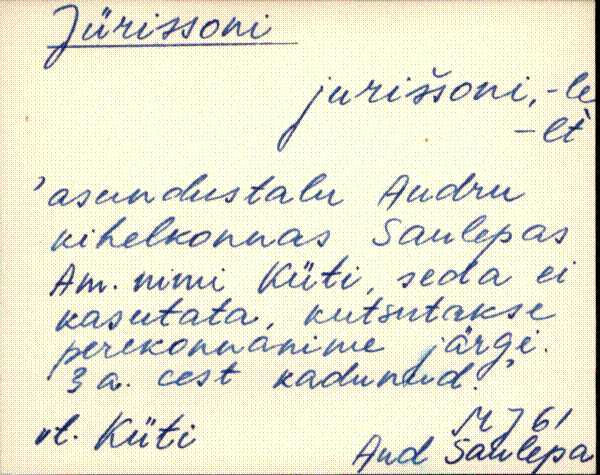 Jürissoni
jurišsoni, -le
-lt
'asundustalu Audru
kihelkonnas Saulepas
Am. nimi Küti, seda ei
kasutata, kutsutakse
perekonnanime järgi.
3 a. eest kadunud.'
vt. Küti
M J 61
Aud Saulepa